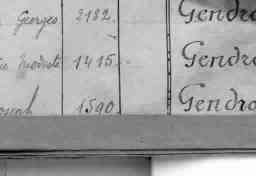 Georges 2182. Gendro
Modeste 1415. Gendro
1590 Gendro